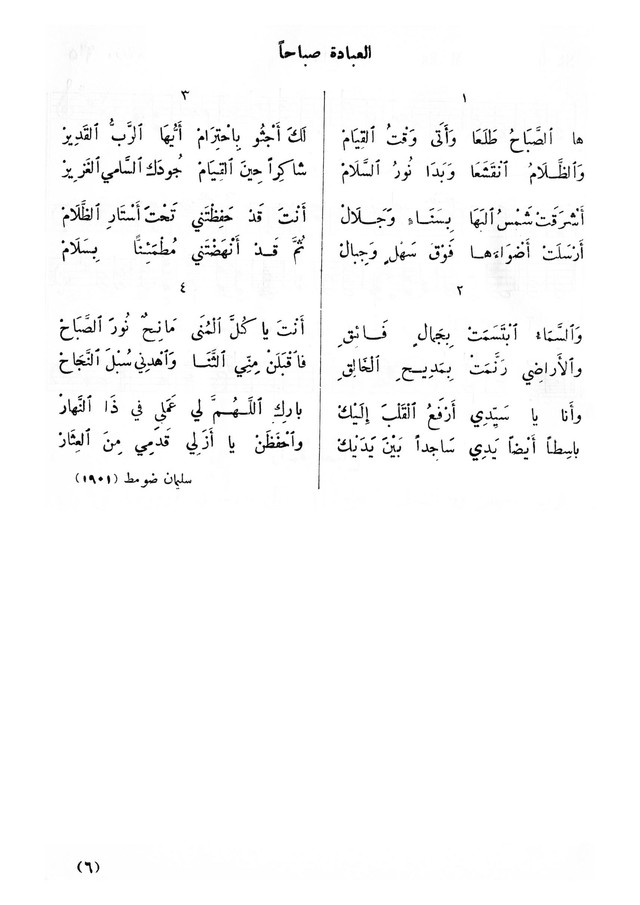 العبادة صباحاً
١
ها الصَّبَاحُ طَلَعَا وَأَتَى وَقْتُ القِيَامْ
وَالظَّلَامُ انْقَشَعَا وَبَدَا نُورُ السَّلَامْ
أَشْرَقَتْ شَمْسُ البَهَا بِسَنَاءٍ وَجَلَالْ
أَرْسَلَتْ أَضْوَاءَهَا فَوْقَ سَهْلٍ وَجِبَالْ
٢
وَالسَّمَاءُ ابْتَسَمَتْ بِجَمالٍ فَائِقِ
والأَراضِي رَنَّمَتْ بِمَدِيحِ الخَالِقِ
وأَنا يا سَيِّدِي أَرْفَعُ القَلْبَ إِلَيْكْ
باسِطاً أَيْضاً يَدِي سَاجِداً بَيْنَ يَدَيْكْ
٣
لَكَ أَجْثُو بِاحْتِرَامْ أَيُّهَا الرَّبُّ القَدِيرْ
شاكِراً حِينَ القِيَامْ جُودَكَ السَّامي الغَزِيرْ
أَنْتَ قَدْ حَفِظْتَنِي تَحْتَ أَسْتَارِ الظَّلَامْ
ثُمَّ قَدْ أَنْهَضْتَنِي مُطْمَئِنّاً بِسَلَامْ
٤
أَنْتَ يا كُلَّ المُنَى مَانِحٌ نُورَ الصَّبَاحْ
فاقْبَلَنْ مِنِّي الثَّنَا وَاهْدِنِي سُبْلَ النَّجَاحْ
بارِكِ اللَّهُمَّ لي عَمَلِي في ذَا النَّهارْ
واحْفَظَنْ يا أَزَلِي قَدَمِي مِنَ العِثَارْ
سليمان ضومط (١٩٠١)
(٦)